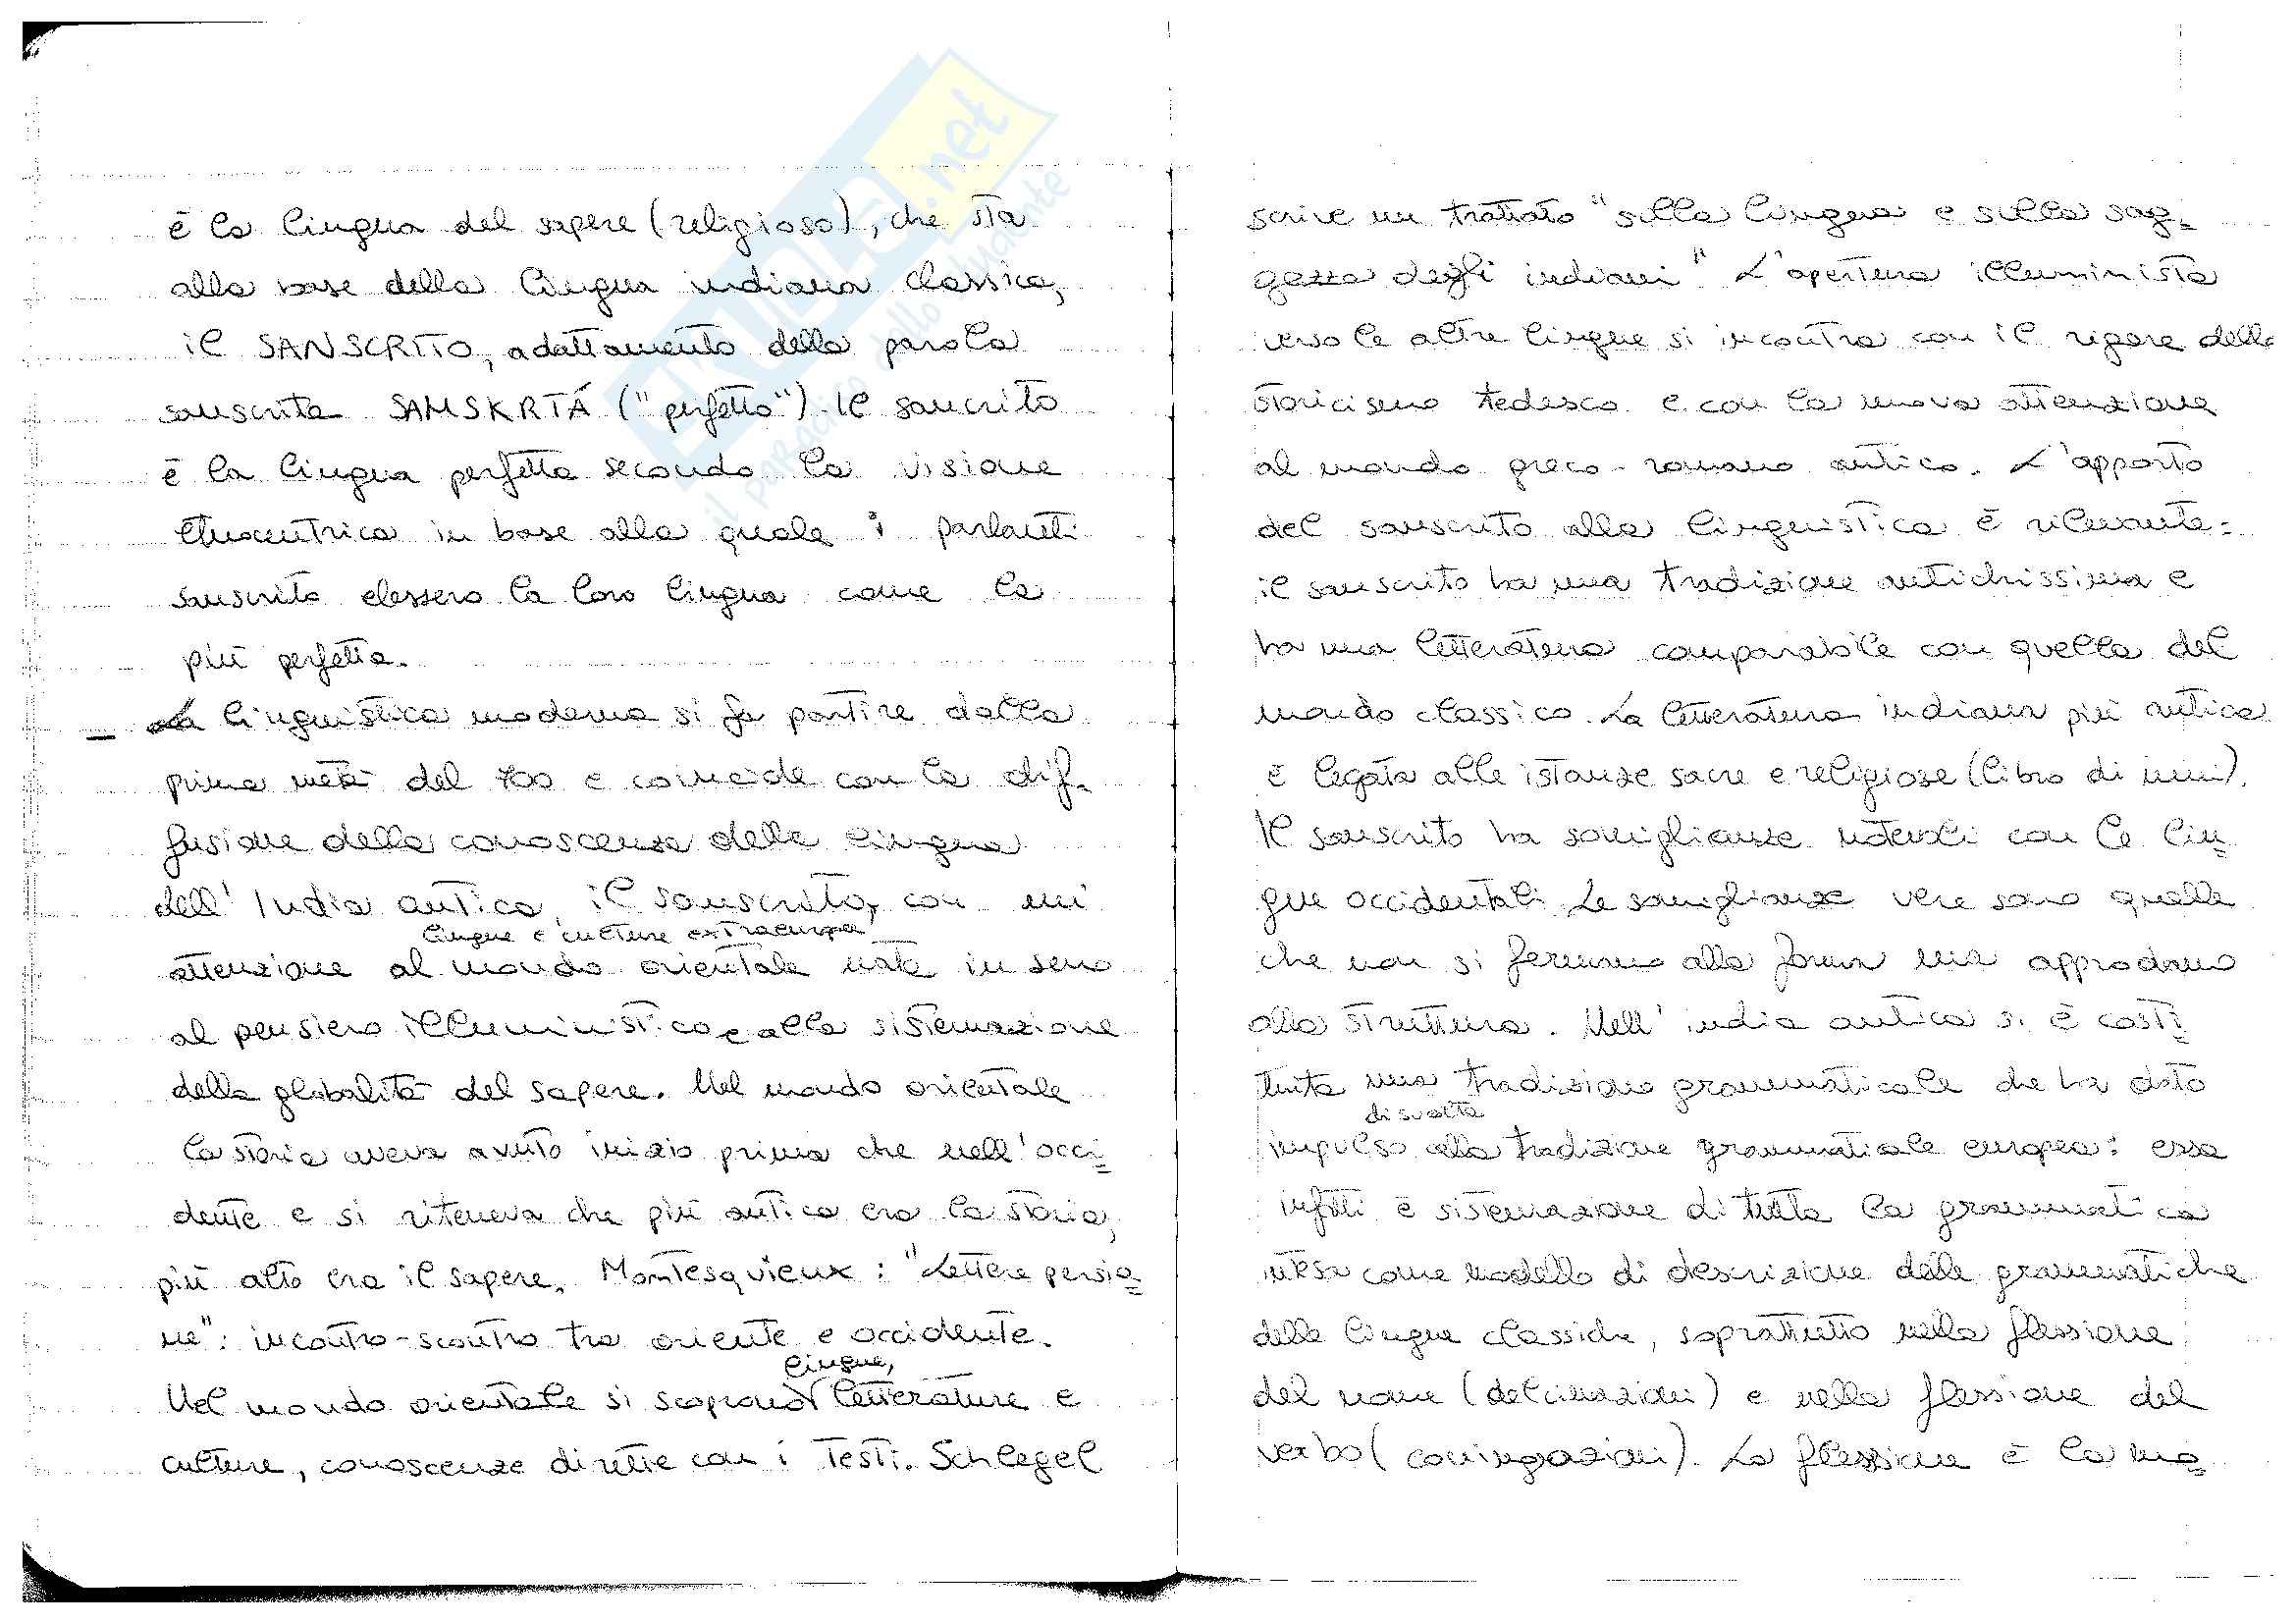 è la lingua del sapere (religioso), che sta
alla base della lingua indiana classica,
il SANSCRITO, adattamento della parola
sanscrita SAMSKRTÁ ("perfetto"). Il sancrito
è la lingua perfetta secondo la visione
etnocentrica in base alla quale i parlanti
sanscrito elessero la loro lingua come la
più perfetta.
- La linguistica moderna si fa partire dalla
prima metà del 700 e coincide con la dif-
fusione della conoscenza della lingua
dell'India antica, il sanscrito, con un'
lingue e culture extraeuropee
attenzione al mondo orientale nata in seno
al pensiero illuministico e alla sistemazione
della globalità del sapere. Nel mondo orientale
la storia aveva avuto inizio prima che nell'occi=
dente e si riteneva che più antica era la storia,
più alto era il sapere. Montesquieux : "Lettere persia=
ne": incontro-scontro tra oriente e occidente.
lingue,
Nel mondo orientale si scoprono letterature e
culture, conoscenze dirette con i testi. Schlegel
scrive un trattato "sulla lingua e sulla sag=
gezza degli indiani" L'apertura illuminista
verso le altre lingue si incontra con il rigore dello
storicismo tedesco e con la nuova attenzione
al mondo greco-romano antico. L'apporto
del sanscrito alla linguistica è rilevante:
il sanscrito ha una tradizione antichissima e
ha una letteratura comparabile con quella del
mondo classico. La letteratura indiana più antica
è legata alle istanze sacre e religiose (libro di inni).
Il sanscrito ha somiglianze notevoli con le lin=
gue occidentali. Le somiglianze vere sono quelle
che non si fermano alla forma ma approdano
alla struttura. Nell'india antica si è costi=
tuita una tradizione grammaticale che ha dato
di svolta
impulso alla tradizione grammaticale europea: essa
infatti è sistemazione di tutta la grammatica
intesa come modello di descrizione delle grammatiche
delle lingue classiche, soprattutto nella flessione
del nome (declinazioni) e nella flessione del
verbo (coniugazioni). La flessione è la mo=
.net
il parico dello studente